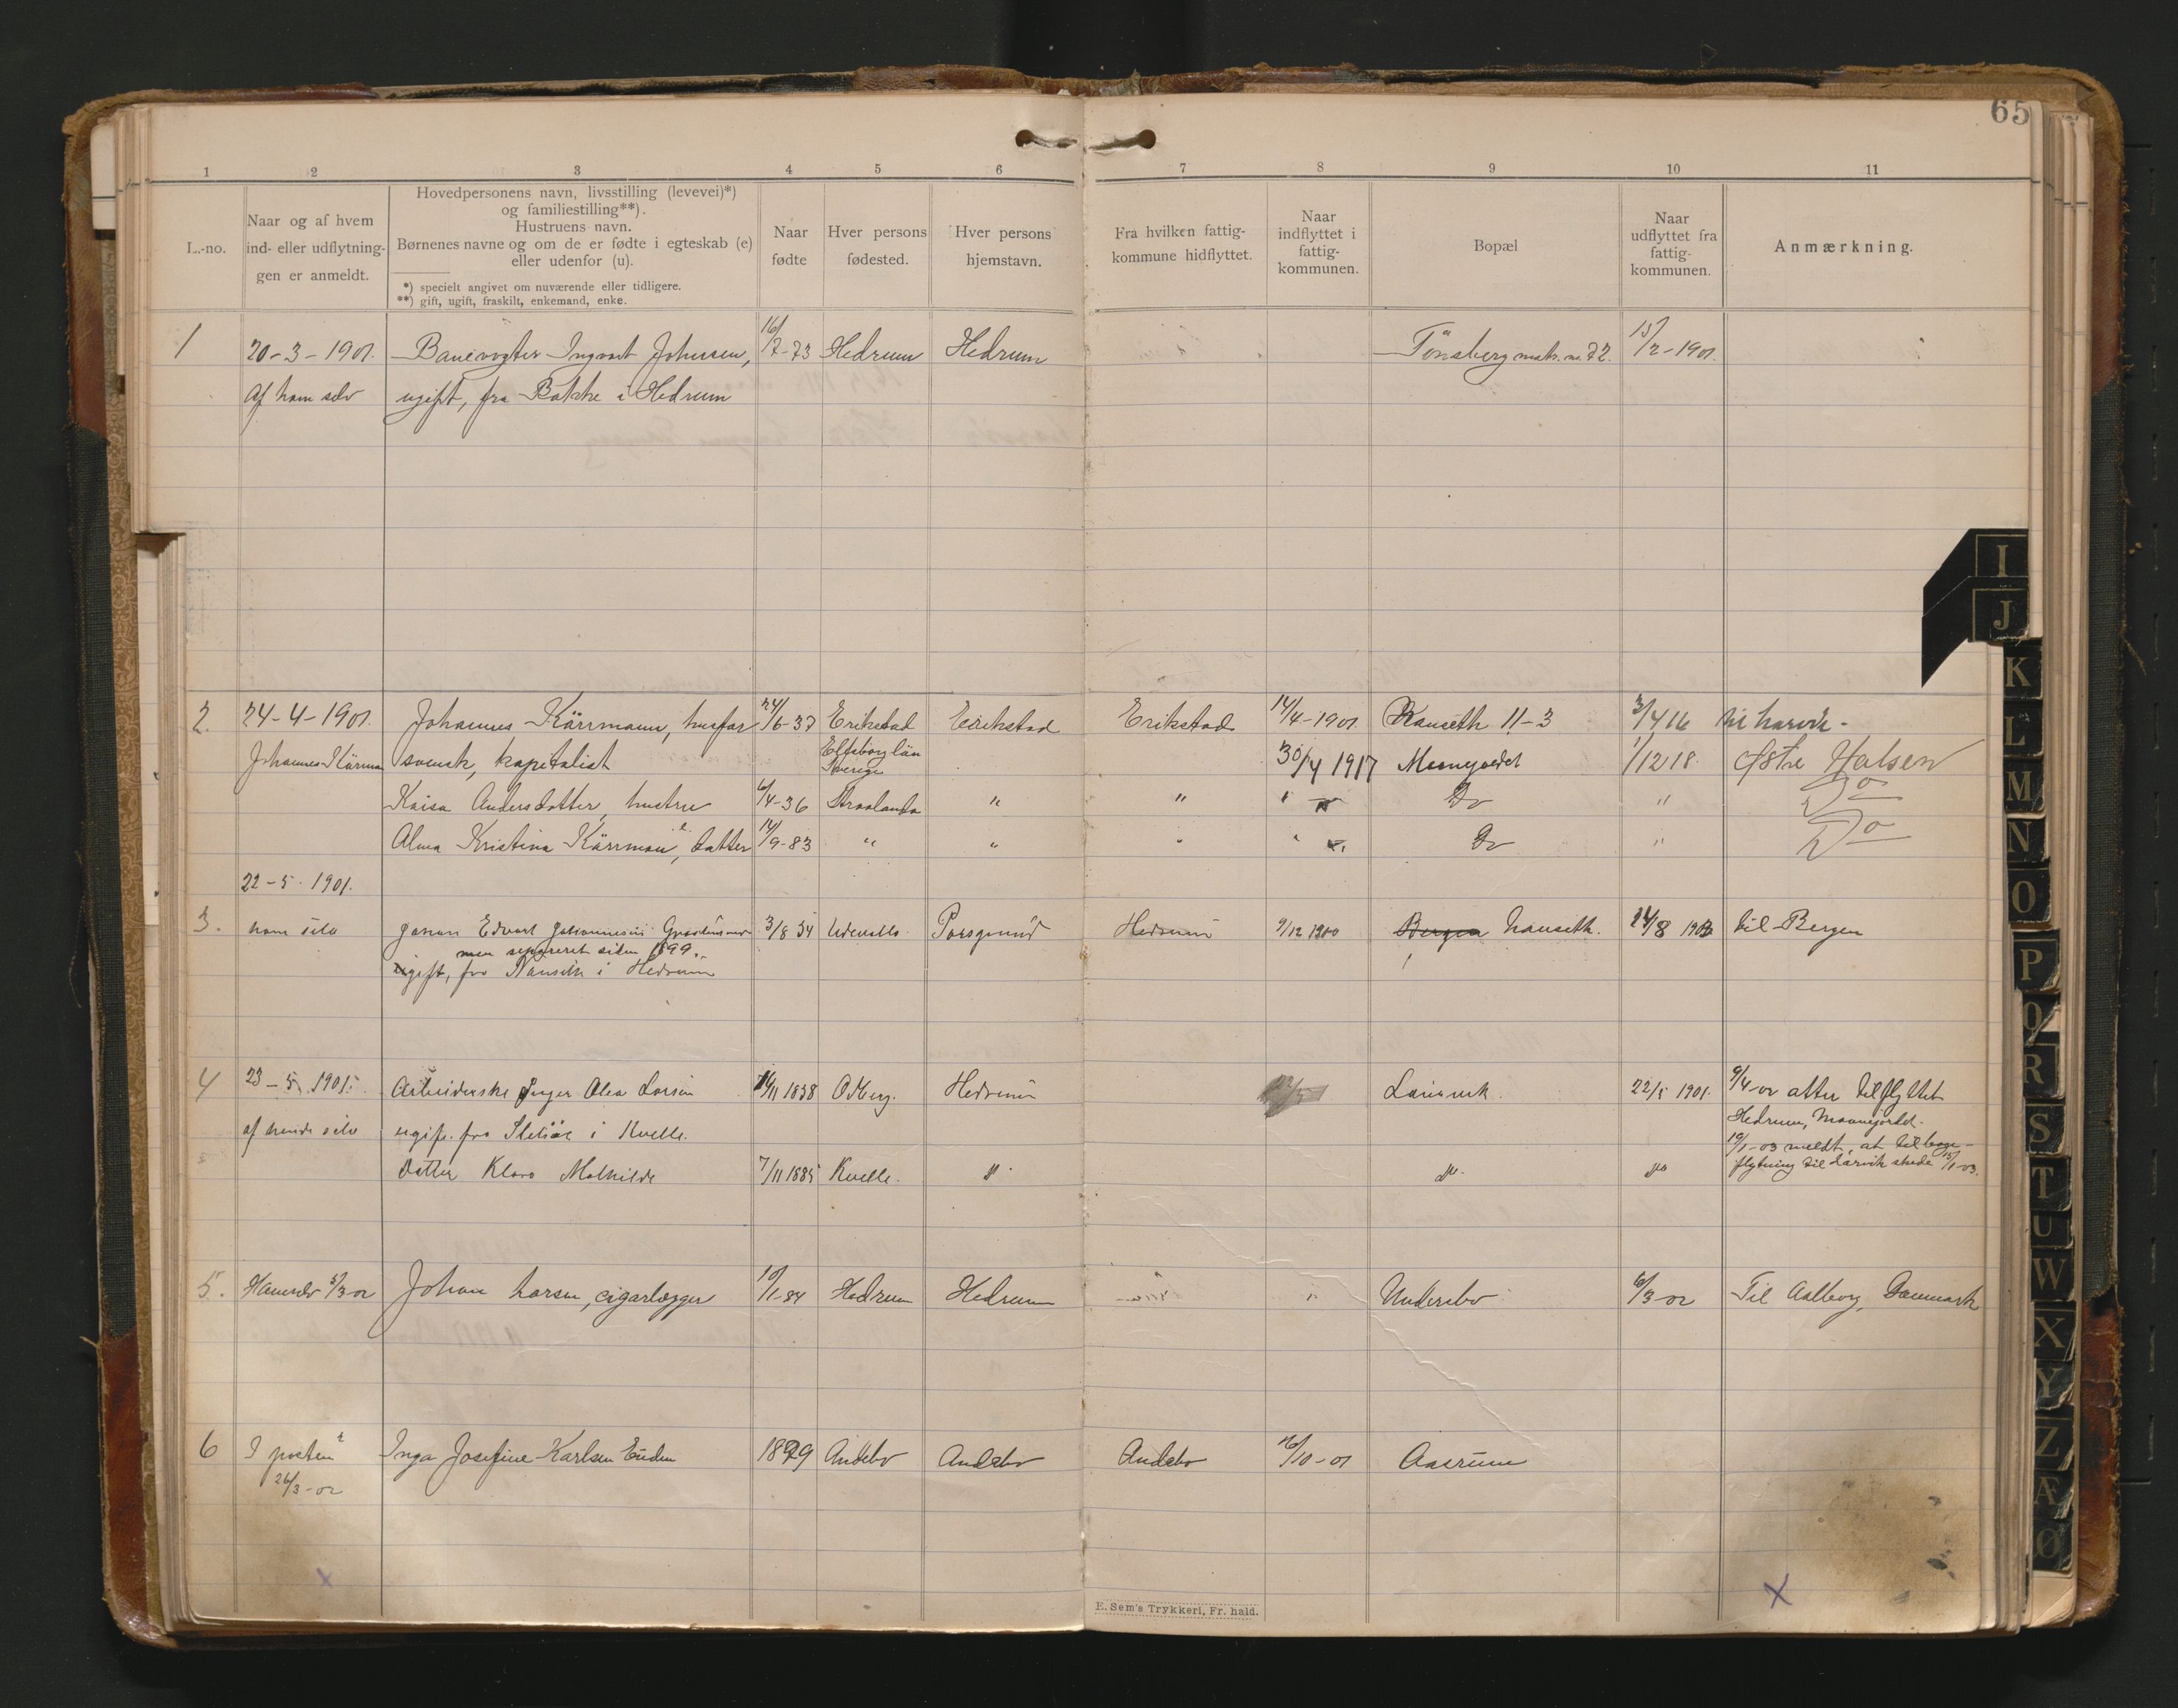 65
1 2 3 4 5 6 7 8 9 10 11
L.-no.
Naar og af hvem
ind- eller udflytnin-
gen er anmeldt.
Hovedpersonens navn, livsstilling (levevei)*)
og familiestilling**).
Hustruens navn.
Børnenes navne og om de er fødte i egteskab (e)
eller udenfor (u).
*) specielt angivet om nuværende eller tidligere.
**) gift, ugift, fraskilt, enkemand, enke.
Naar
fødte
Hver persons
fødested.
Hver persons
hjemstavn.
Fra hvilken fattig-
kommune hidflyttet.
Naar
indflyttet i
fattig-
kommunen.
Bopæl
Naar
udflyttet fra
fattig-
kommunen.
Anmærkning.
1 20-3-1901. Banevogter Ingvart Johnsen, 16/7-73 Hedrum Hedrum Tönsberg matr. nr. 72. 15/2-1901.
Af ham selv ugift, fra Bakke i Hedrum
2. 24-4-1901. Johannes Kärrmann, husfar 24/6-37 Erikstad Erikstad Erikstad 14/4-1901 Nanseth 11-3 3/4 16 til Larvik-
Johannes Kärman svensk, kapitalist Elfsborg län Sverige 30/4 1917 Moanejordet 1/12 18. Østre Halsen
Kaisa Andersdotter, hustru 6/4-36 " " " Do " Do
Alma Kristina Kärrman, e. datter 14/9-83 " " " " Do " Do
22-5-1901.
3. ham selv Johan Edvart Johannesen 3/8 34 Udevalla Porsgrund Hedrum 9/12 1900 Bergen Nanseth. 24/8 1903 til Bergen
men separeret siden 1899.
ugift, fra Nanseth i Hedrum
4 23-5-1901. Arbeiderske Inger Olea Larsen 14/11 1838 Odberg. Hedrum 22/5 Laurvik. 22/5 1901. 9/4-02 atter tilflyttet
Hedrum, Moanejordet.
af hende selv ugift. fra i Kvelle. 10/1-03 meldt, at tilbage-
Datter Klara Mathilde 7/11 1885 Kvelle. " " " flytning til Larvik skede 15/1-03.
5. Ham selv 5/3-02 Johan Larsen, cigarlægger 10/1-84 Hedrum Hedrum " Undersbo 6/3-02 Til Aalborg, Danmark
6 I posten Inga Josefine Karlsen 1899 Andebo Andebo Andebo 26/10-01 Aasrum
26/3-02
X X
E. Sem's Trykkeri, Fr. hald.
I
J
K
L
M
N
O
P
Q
R
S
T
U
W
X
Y
Z
Æ
Ø